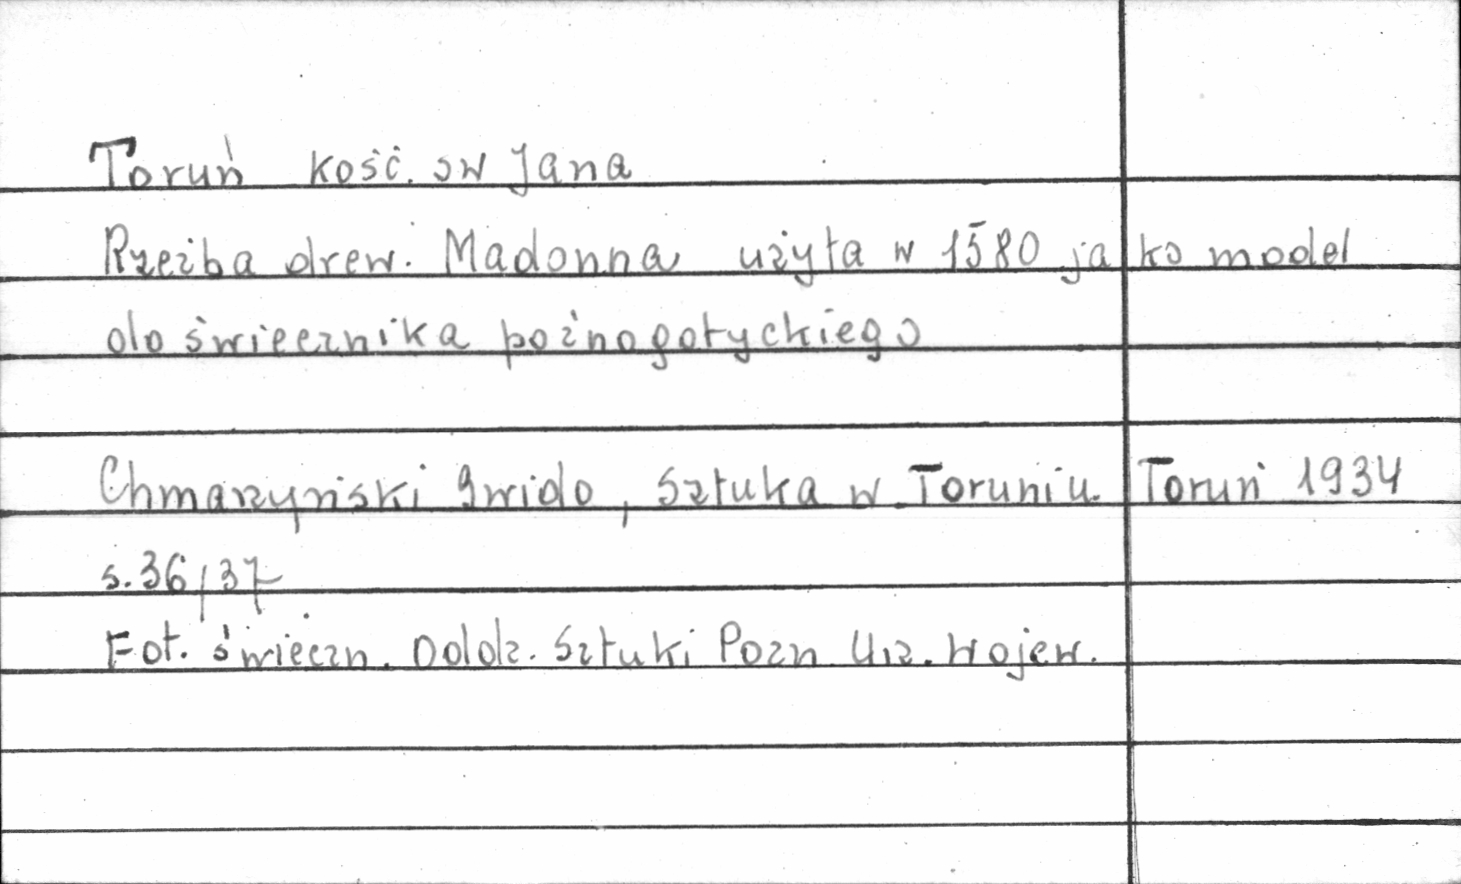 Toruń kość. sw Jana
Rzeźba drew. Madonna użyta w 1580 jako model
do świecznika poźnogotyckiego
Chmarzyński Gwido, Sztuka w Toruniu Toruń 1934
s. 36/37
Fot. świeczn. Oddz. Sztuki Pozn Urz. Wojew.